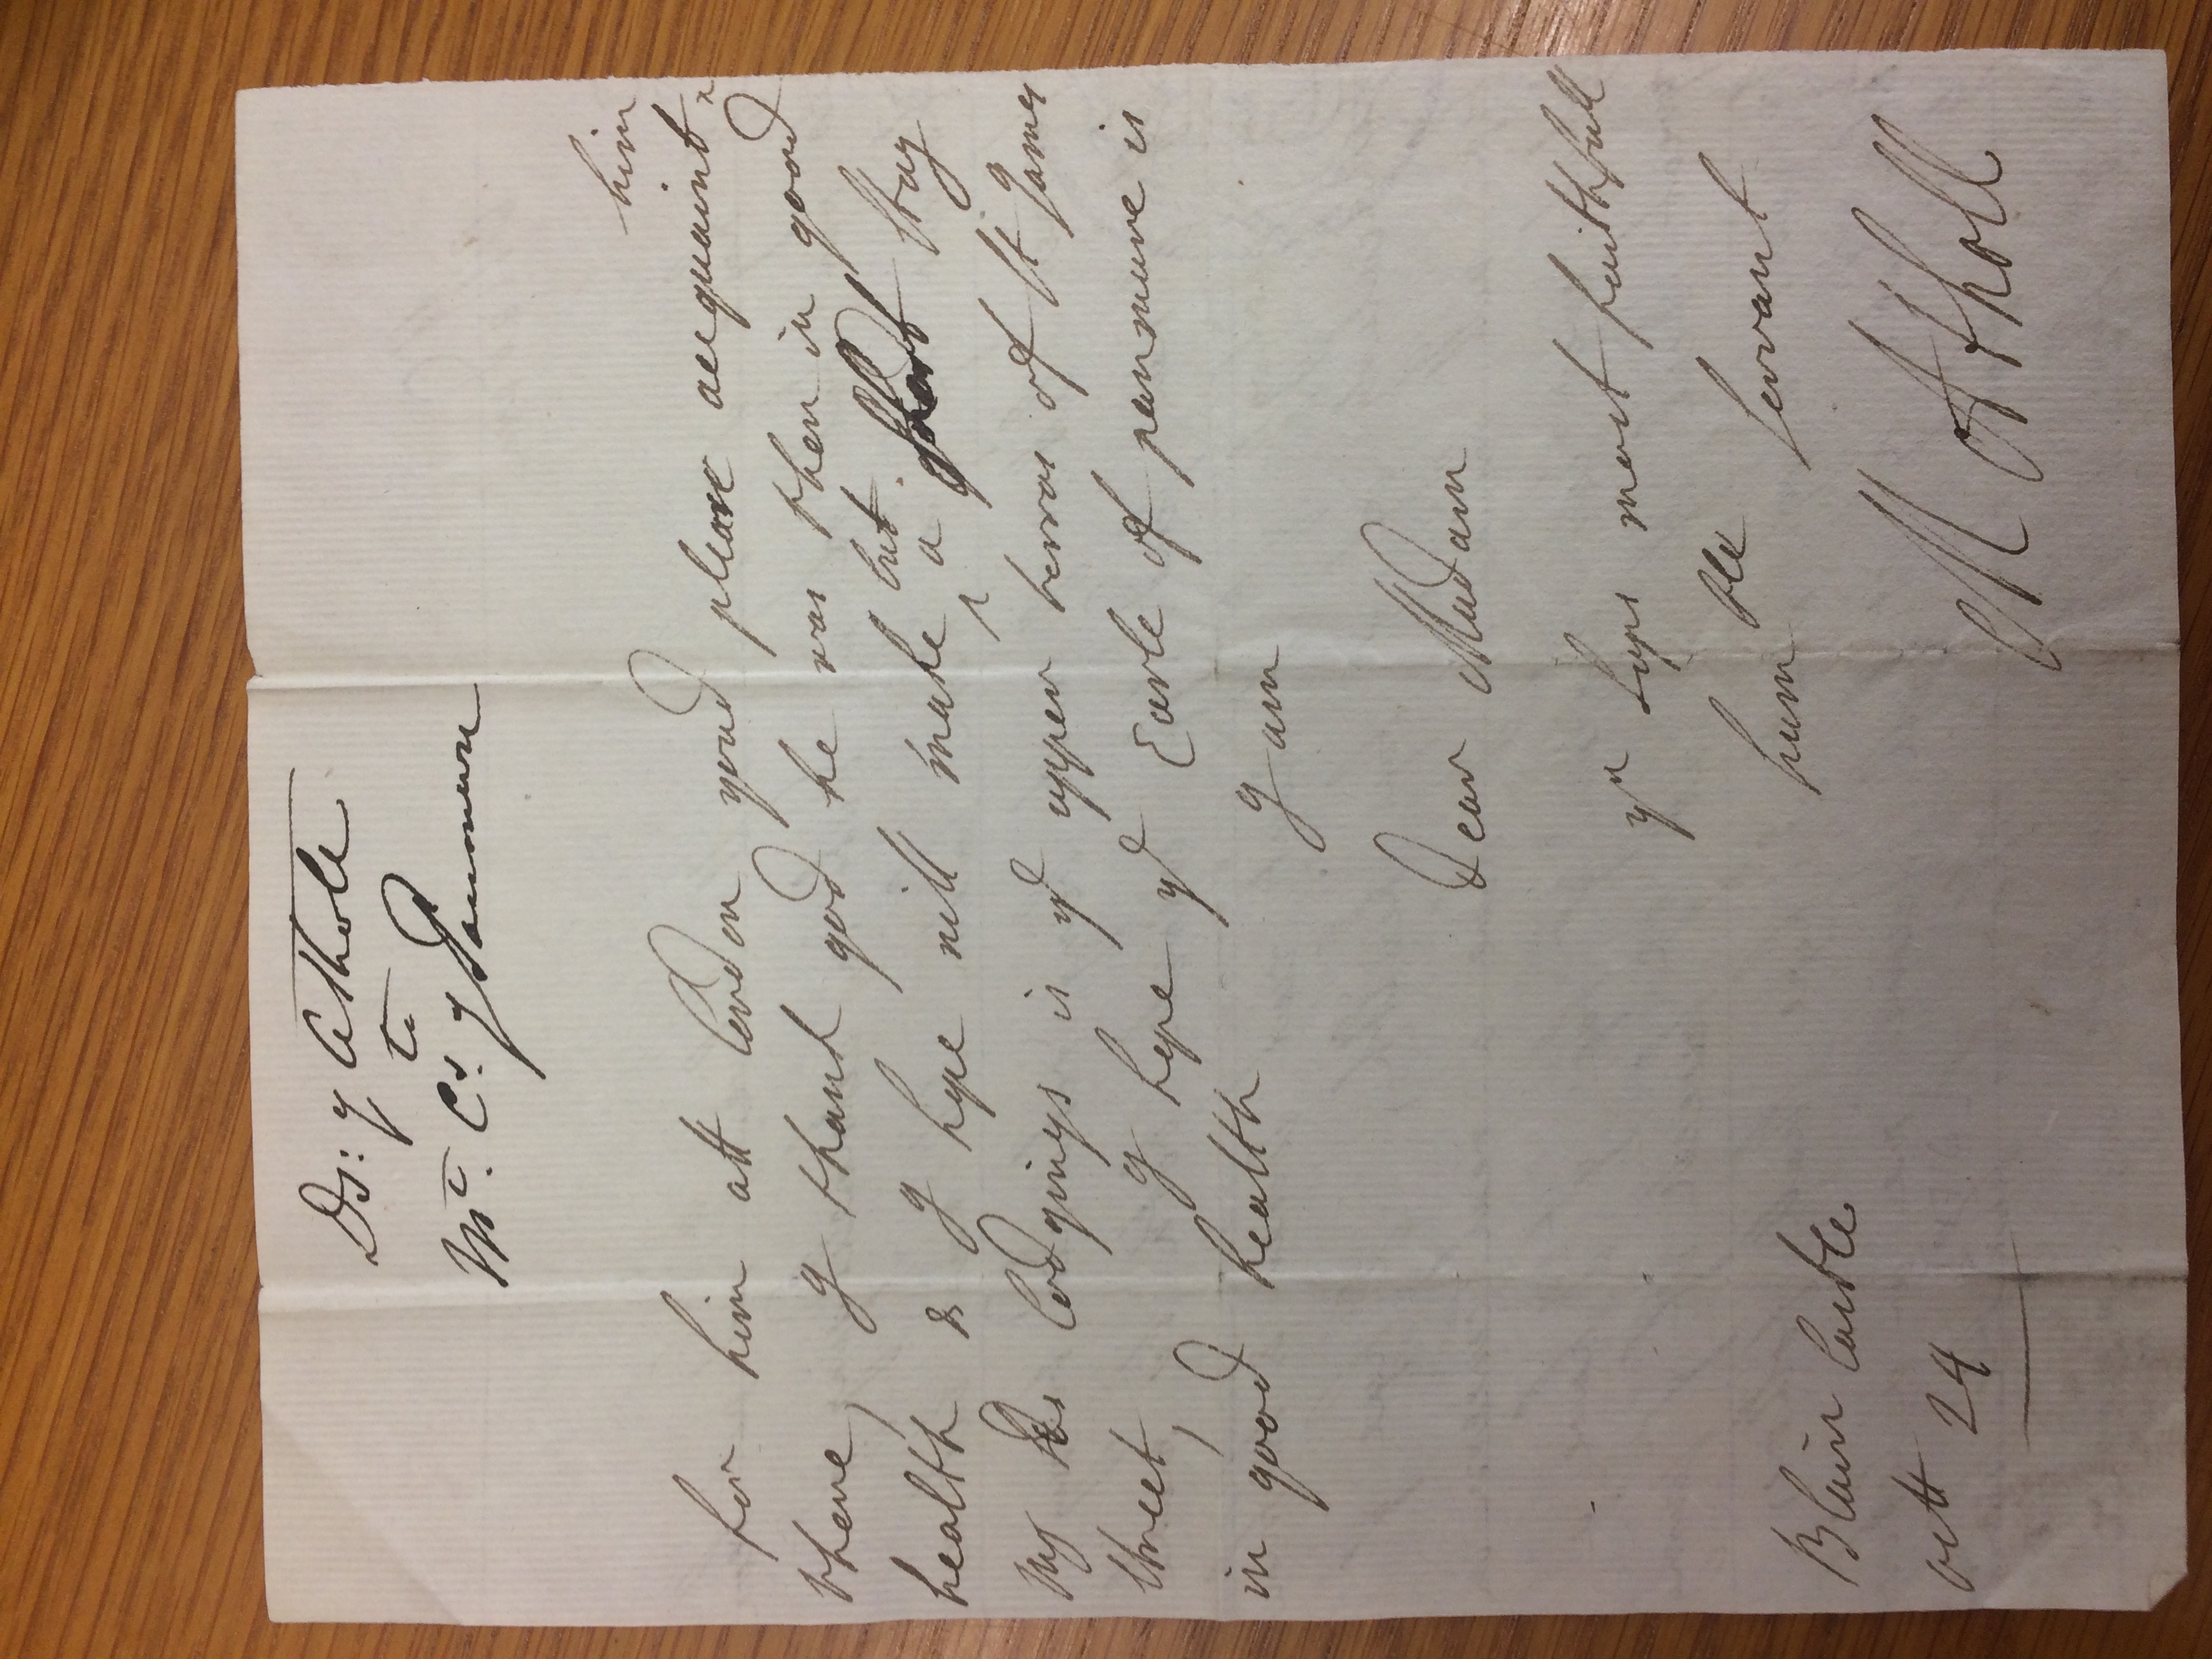 Ds: of Atholl
to
Mt. Cs. of Panmure
him
for him att london youd please acquaint
there, I thank god he was then in good
health & I hope will make but a short stay
my Ds lodgings is ye upper terras of St James
street, I hope ye Earle of panmure is
in good health I am
Dear Madam
yr Laps most faithfull
humble servant
Blair Castle
octt 24
M Atholl